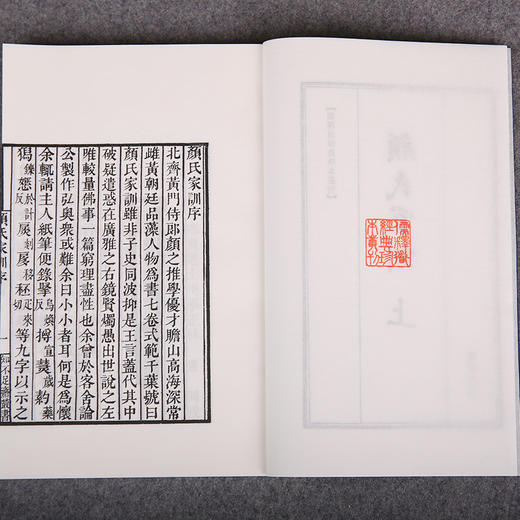 顏氏家訓序
北齊黃門侍郎顏之推學優才贍山高海深常
雌黃朝廷品藻人物爲書七卷式範千葉號曰
顏氏家訓雖非子史同波抑是王言蓋代其中
破疑遣惑在廣雅之右鏡賢燭愚出世說之左
唯較量佛事一篇窮理盡性也余曾於客舍論
公製作弘奧衆或難余曰小小者耳何是爲懷
余輒請主人紙筆便錄烏煥反宣歲藥
猲於計反扊剡扅移秠疋來切等九字以示之
顏氏家訓序
一
知不足齋叢書
顏氏
上